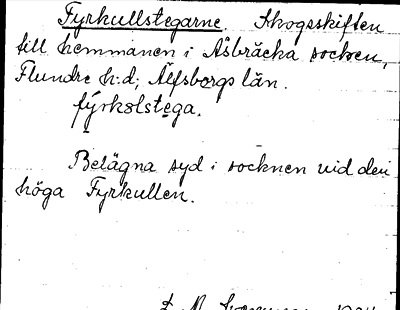 Fyrkullstegarne. Skogsskiften
till hemmanen i Åsbräcka socken,
Flundre h:d; Älfsborgs län.
fýrkolstega.
Belägna syd i socknen vid den
höga Fyrkullen.